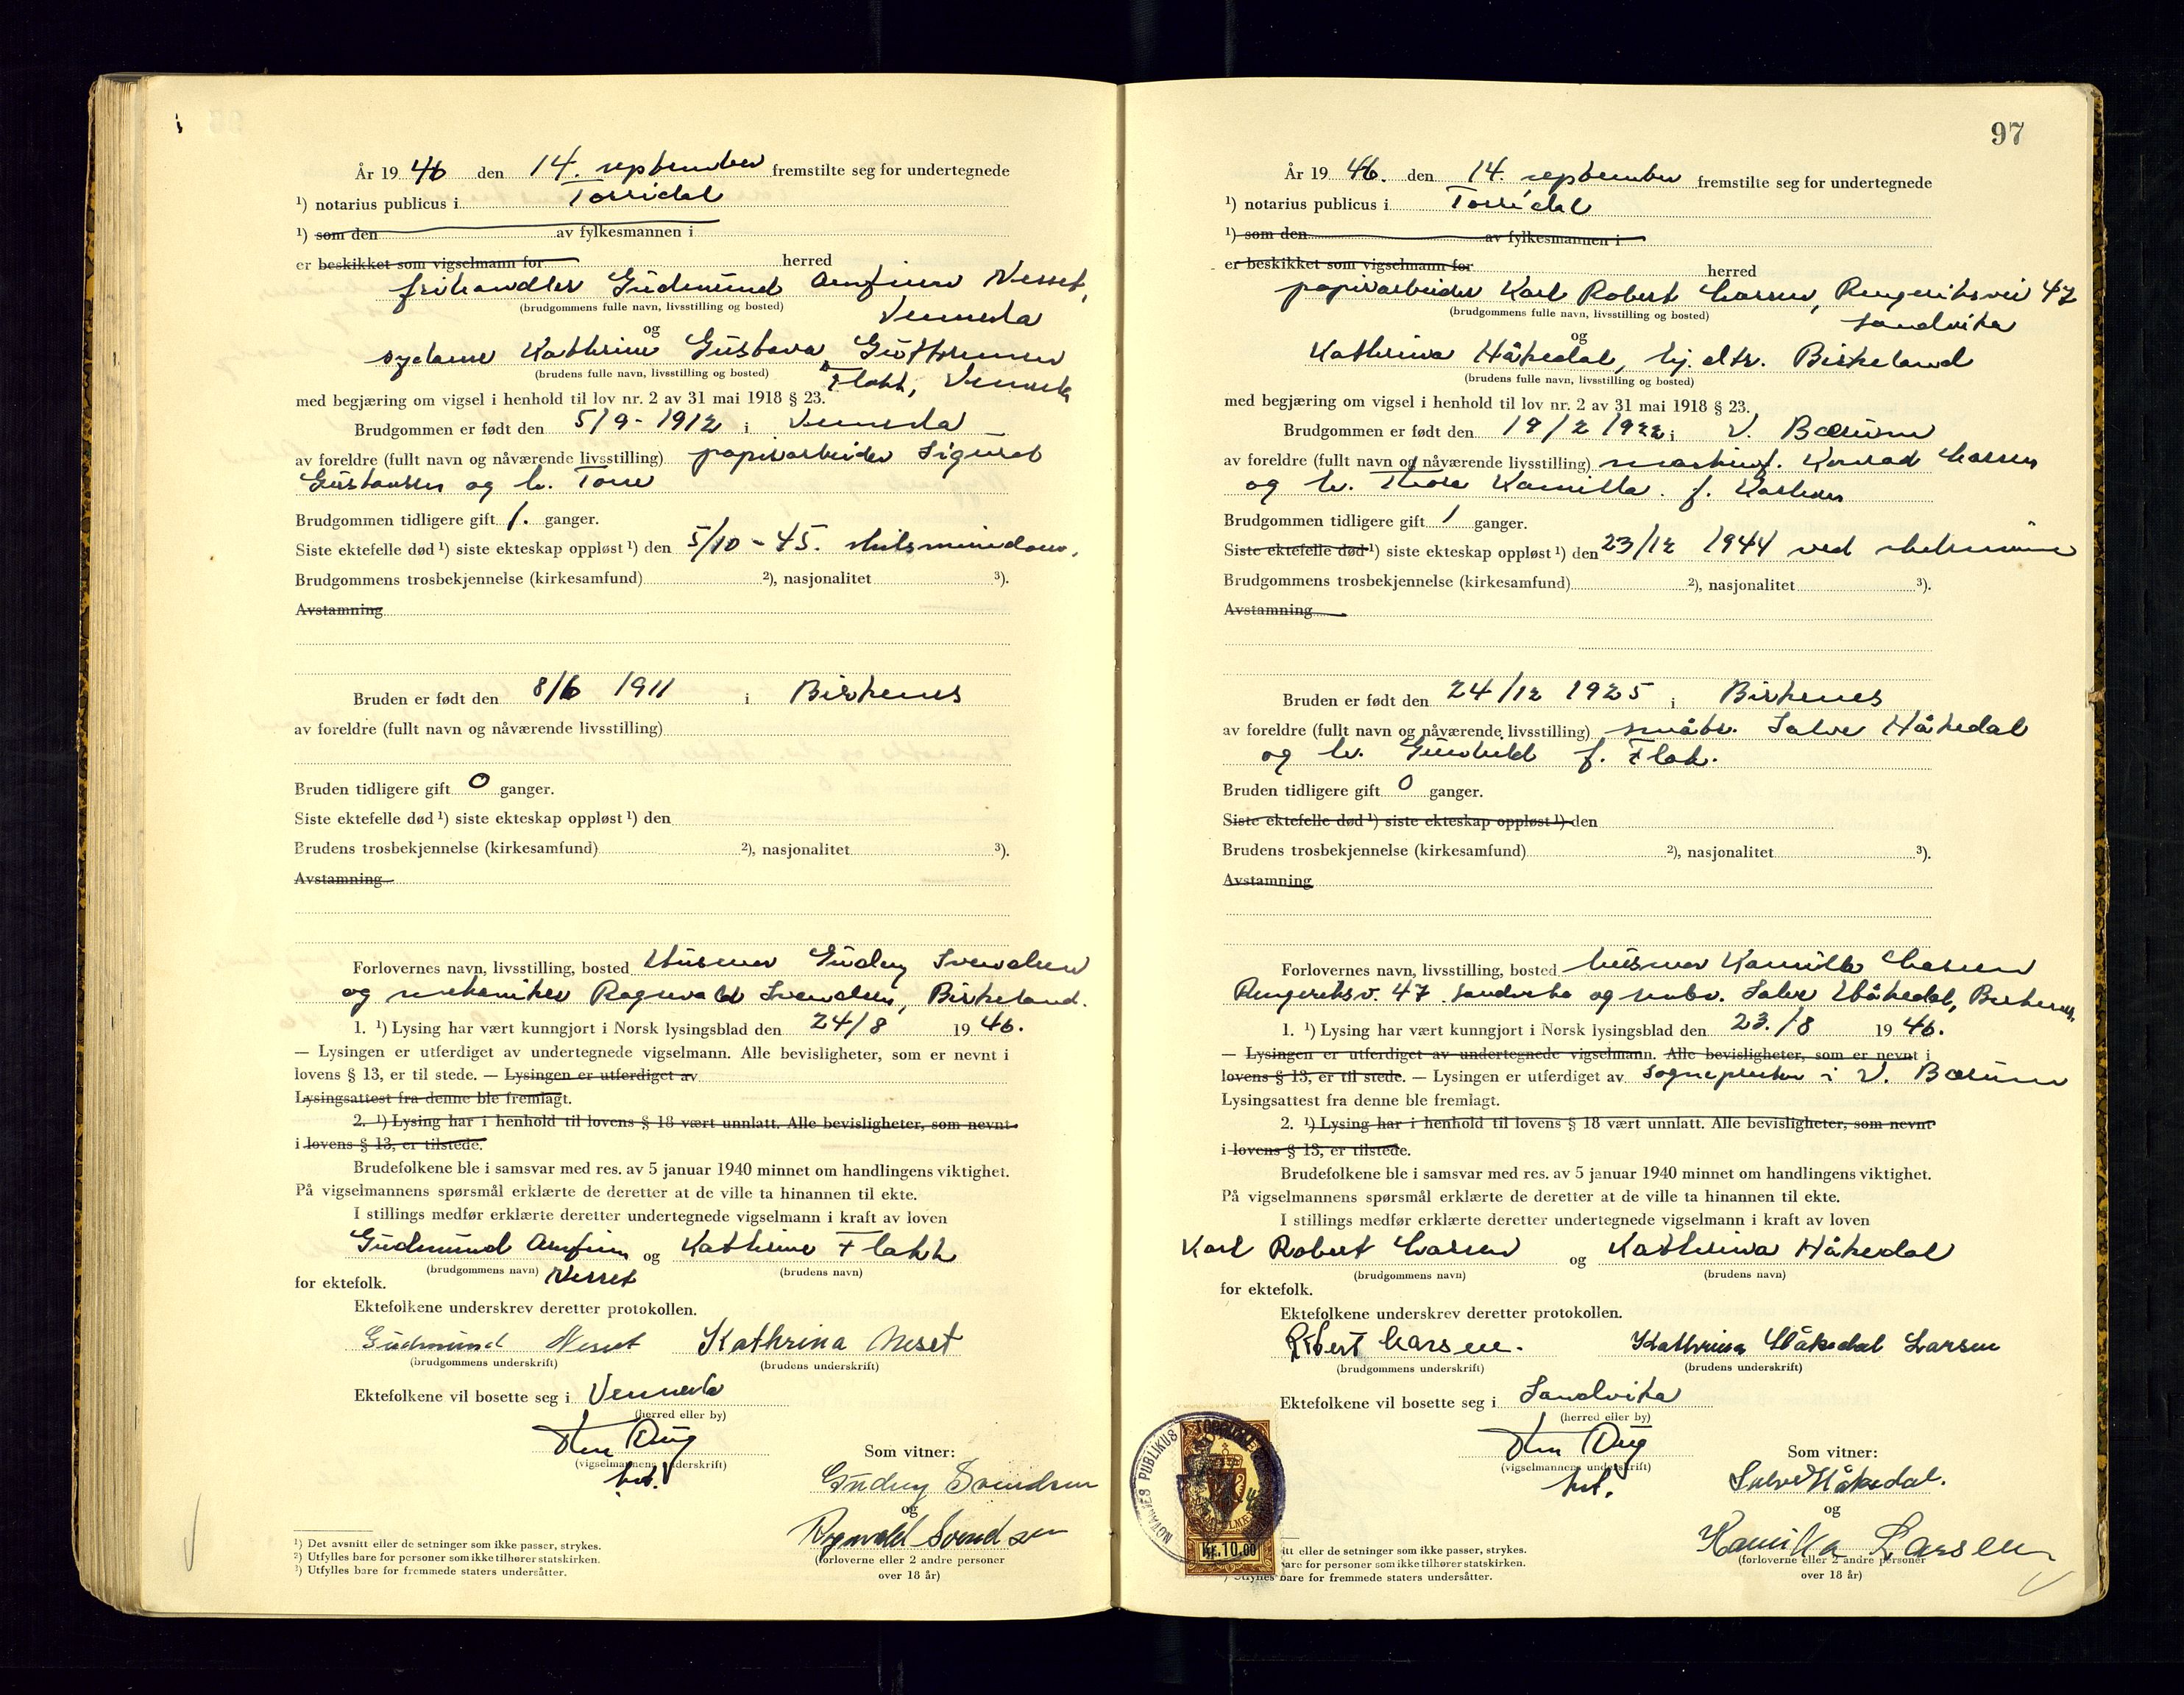 År 19 46 den 14. september fremstilte seg for undertegnede
¹) notarius publicus i Torridal
¹) som den av fylkesmannen i
er beskikket som vigselmann for herred
Gudmund Arnfinn Nesset,
(brudgommens fulle navn, livsstilling og bosted) Vennesla
og
sydame Kathrine Gustava
(brudens fulle navn, livsstilling og bosted) Flakk, Vennesla
med begjæring om vigsel i henhold til lov nr. 2 av 31 mai 1918 § 23.
Brudgommen er født den 5/9 - 1912 i Vennesla
av foreldre (fullt navn og nåværende livsstilling) papirarbeider Sigurd
Gustavsen og h. Tone
Brudgommen tidligere gift 1. ganger.
Siste ektefelle død ¹) siste ekteskap oppløst ¹) den 5/10 - 45.
Brudgommens trosbekjennelse (kirkesamfund) ²), nasjonalitet ³).
Avstamning
Bruden er født den 8/6 1911 i Birkenes
av foreldre (fullt navn og nåværende livsstilling)
Bruden tidligere gift 0 ganger.
Siste ektefelle død ¹) siste ekteskap oppløst ¹) den
Brudens trosbekjennelse (kirkesamfund) ²), nasjonalitet ³).
Avstamning
Forlovernes navn, livsstilling, bosted Husmor Gudny Svendsen
og mekaniker Ragnvald Svendsen, Birkeland.
1. ¹) Lysing har vært kunngjort i Norsk lysingsblad den 24/8 19 46.
— Lysingen er utferdiget av undertegnede vigselmann. Alle bevisligheter, som er nevnt i
lovens § 13, er til stede. — Lysingen er utferdiget av
Lysingsattest fra denne ble fremlagt.
2. ¹) Lysing har i henhold til lovens § 18 vært unnlatt. Alle bevisligheter, som nevnt
i lovens § 13, er tilstede.
Brudefolkene ble i samsvar med res. av 5 januar 1940 minnet om handlingens viktighet.
På vigselmannens spørsmål erklærte de deretter at de ville ta hinannen til ekte.
I stillings medfør erklærte deretter undertegnede vigselmann i kraft av loven
Gudmund Arnfinn og Kathrine Flakk
(brudgommens navn) Nesset (brudens navn)
for ektefolk.
Ektefolkene underskrev deretter protokollen.
Gudmund Neset Kathrina Neset
(brudgommens underskrift) (brudens underskrift)
Ektefolkene vil bosette seg i Vennesla
(herred eller by)
(vigselmannens underskrift)
Som vitner:
Gudny Svendsen
og
Ragnvald Svendsen
(forloverne eller 2 andre personer
over 18 år)
¹) Det avsnitt eller de setninger som ikke passer, strykes.
²) Utfylles bare for personer som ikke tilhører statskirken.
³) Utfylles bare for fremmede staters undersåtter.
97
År 19 46. den 14. september fremstilte seg for undertegnede
¹) notarius publicus i Torridal
¹) som den av fylkesmannen i
er beskikket som vigselmann for herred
papirarbeider Karl Robert Larsen, Ringeriksvei 47
(brudgommens fulle navn, livsstilling og bosted) Sandvika
og
Kathrina Håkedal, hj. dtr. Birkeland
(brudens fulle navn, livsstilling og bosted)
med begjæring om vigsel i henhold til lov nr. 2 av 31 mai 1918 § 23.
Brudgommen er født den 19/2 1922 i V. Bærum
av foreldre (fullt navn og nåværende livsstilling) maskinf. Konrad Larsen
og h. Thora Kamilla f. Karlsen
Brudgommen tidligere gift 1 ganger.
Siste ektefelle død ¹) siste ekteskap oppløst ¹) den 23/12 1944 ved
Brudgommens trosbekjennelse (kirkesamfund) ²), nasjonalitet ³).
Avstamning
Bruden er født den 24/12 1925 i Birkenes
av foreldre (fullt navn og nåværende livsstilling) småbr. Salve Håkedal
og h. Gunhild f. Flak.
Bruden tidligere gift 0 ganger.
Siste ektefelle død ¹) siste ekteskap oppløst ¹) den
Brudens trosbekjennelse (kirkesamfund) ²), nasjonalitet ³).
Avstamning
Forlovernes navn, livsstilling, bosted husmor Kamilla Larsen
Ringeriksv. 47 Sandvika og småbr. Salve Håkedal, Birkenes.
1. ¹) Lysing har vært kunngjort i Norsk lysingsblad den 23./8 19 46.
— Lysingen er utferdiget av undertegnede vigselmann. Alle bevisligheter, som er nevnt i
lovens § 13, er til stede. — Lysingen er utferdiget av Sognepresten i V. Bærum
Lysingsattest fra denne ble fremlagt.
2. ¹) Lysing har i henhold til lovens § 18 vært unnlatt. Alle bevisligheter, som nevnt
i lovens § 13, er tilstede.
Brudefolkene ble i samsvar med res. av 5 januar 1940 minnet om handlingens viktighet.
På vigselmannens spørsmål erklærte de deretter at de ville ta hinannen til ekte.
I stillings medfør erklærte deretter undertegnede vigselmann i kraft av loven
Karl Robert Larsen og Kathrina Håkedal
(brudgommens navn) (brudens navn)
for ektefolk.
Ektefolkene underskrev deretter protokollen.
Robert Larsen. Kathrina Håkedal Larsen
(brudgommens underskrift) (brudens underskrift)
Ektefolkene vil bosette seg i Sandvika
(herred eller by)
(vigselmannens underskrift)
Som vitner:
Salve Håkedal.
og
Kamilla Larsen
(forloverne eller 2 andre personer
over 18 år)
NOTARIUS PUBLIKUS
Kr. 10.00
itt eller de setninger som ikke passer, strykes.
are for personer som ikke tilhører statskirken.
bare for fremmede staters undersåtter.